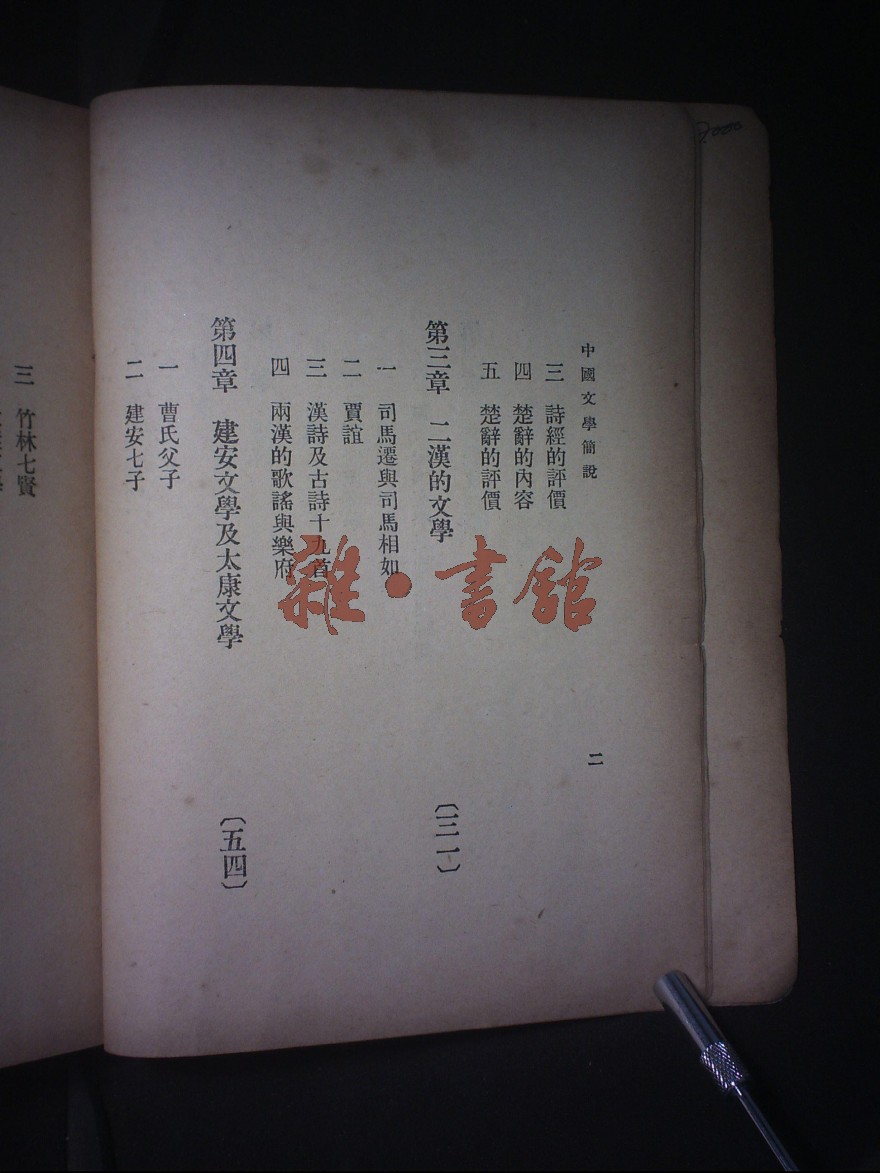 中國文學簡說
二
三 詩經的評價
四 楚辭的內容
五 楚辭的評價
第三章 二漢的文學 〔三一〕
一 司馬遷與司馬相如
二 賈誼
三 漢詩及古詩十九首
四 兩漢的歌謠與樂府
第四章 建安文學及太康文學 〔五四〕
一 曹氏父子
二 建安七子
三 竹林七賢
雜·書館